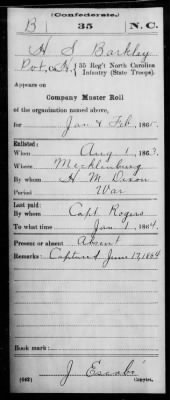 (Confederate.)
B 35 N.C.
H S Barkley
Pvt, Co. K, 35 Reg't North Carolina
Infantry (State Troops).
Appears on
Company Muster Roll
of the organization named above,
for Jan & Feb, 1865.
Enlisted:
When Aug 1, 1863.
Where Mecklenburg
By whom H M Dixon
Period War
Last paid:
By whom Capt Rogers
To what time Jan 1, 1864.
Present or absent Absent
Remarks: Captured June 17, 1864
Book mark:
J Escobi
(642) Copyist.